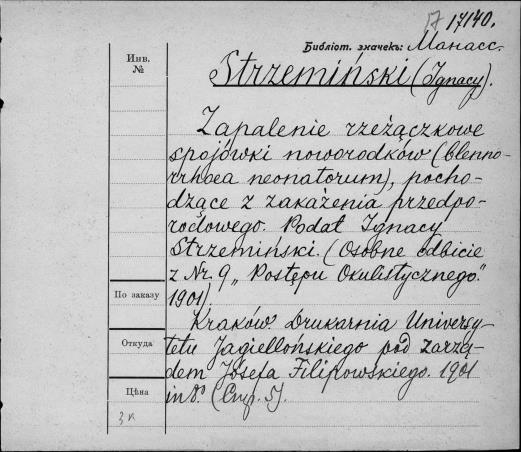 17 17140.
Библіот. значекъ: Манасс.
Инв.
№
Strzemiński (Ignacy).
Zapalenie rzeżączkowe
spojówki noworodków (blenno-
rrhoea neonatorum), pocho-
dzące z zakażenia przedpo-
rodowego. Podał Ignacy
Strzemiński. (Osobne odbicie
z Nr. 9 „Postępu Okulistycznego."
1901).
По заказу
Kraków. Drukarnia Uniwersy-
Откуда
tetu Jagiellońskiego pod zarzą-
dem Józefa Filipowskiego. 1901
Цѣна
in 8º. (Стр. 5).
3 к